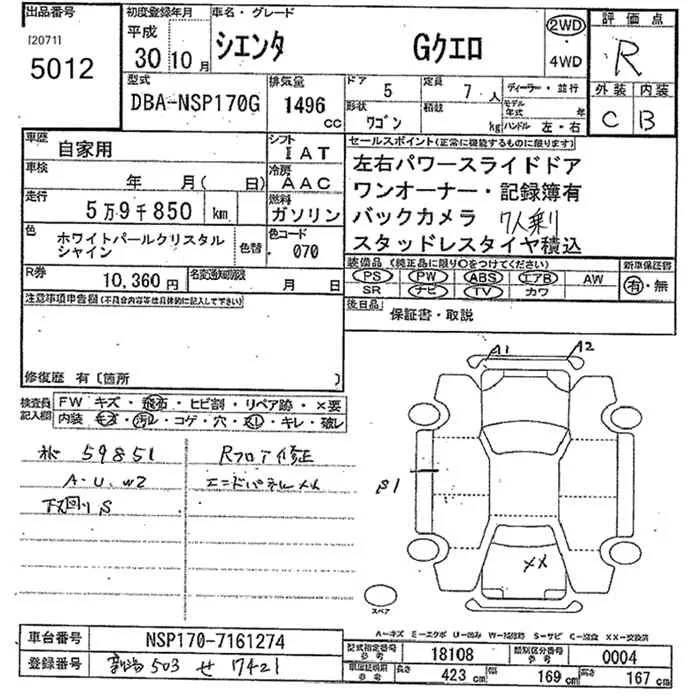 出品番号
I20711
5012
初度登録年月
平成
30年10月
車名・グレード
シエンタ Gクエロ
2WD
4WD
評価点
R
外装 内装
C B
型式
DBA-NSP170G
排気量
1496 cc
ドア 5
定員 7人
形状 ワゴン
積数 kg
ディーラー・並行
モデル年式 年
ハンドル 左・右
車歴
自家用
シフト
IAT
車検
年 月( 日)
冷房
AAC
走行
5万9千850 km
燃料
ガソリン
色
ホワイトパールクリスタル
シャイン
色替
色コード
070
R券
10,360円
名変通知期限 月 日
セールスポイント(正常に機能するものに限ります)
左右パワースライドドア
ワンオーナー・記録簿有
バックカメラ 7人乗り
スタッドレスタイヤ積込
装備品(純正品に限り○をつけてください)
PS PW ABS エアB AW
SR ナビ TV カワ
新車保証書
有・無
後日品
保証書・取説
注意事項申告欄(不具合内容等は具体的に記入して下さい)
修復歴 有〔箇所 〕
検査員記入欄
FW キズ・飛石・ヒビ割・リペア跡・×要
内装 キズ・汚レ・コゲ・穴・スレ・キレ・破レ
59851
A・U、W2
下回りS
Rフロア修正
エンドパネルメルメ
A1 A2
B1
XX
スペア
A-キズ E-エクボ U-凹み W-補修跡 S-サビ C-腐食 XX-交換済
車台番号
NSP170-7161274
登録番号
503 せ 7421
型式指定番号 参考
18108
類別区分番号 参考
0004
車両証明用 参考
長さ 423 cm
幅 169 cm
高さ 167 cm